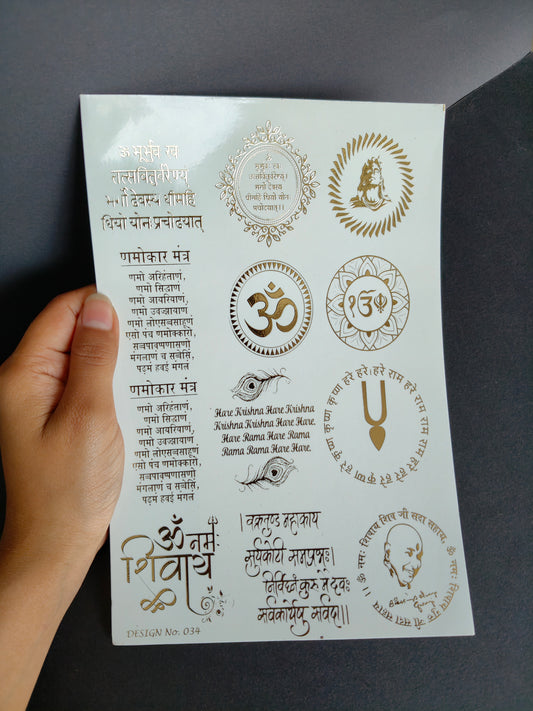 ॐ भूर्भुव स्व
तत्सवितुर्वरेण्यं
भर्गो देवस्य धीमहि
धियो योनः प्रचोदयात्
भूर्भुवः स्व
तत्सवितुर्वरेण्यं।
भर्गो देवस्य
धीमहि धियो योनः
प्रचोदयात्।।
णमोकार मंत्र
णमो अरिहंताणं,
णमो सिद्धाणं
णमो आयरियाणं,
णमो उवज्झायाणं
णमो लोएसव्वसाहूणं
एसो पंच णमोक्कारो,
सव्वपावप्पणासणो
मंगलाणं च सव्वेसिं,
पढ़मं हवई मंगलं
ॐ
णमोकार मंत्र
णमो अरिहंताणं,
णमो सिद्धाणं
णमो आयरियाणं,
णमो उवज्झायाणं
णमो लोएसव्वसाहूणं
एसो पंच णमोक्कारो,
सव्वपावप्पणासणो
मंगलाणं च सव्वेसिं,
पढ़मं हवई मंगलं
Hare Krishna Hare Krishna
Krishna Krishna Hare Hare.
Hare Rama Hare Rama
Rama Rama Hare Hare.
हरे कृष्ण हरे कृष्ण कृष्ण कृष्ण हरे हरे। हरे राम हरे राम राम राम हरे हरे
ॐ नमः
शिवाय
। वक्रतुण्ड महाकाय
सुर्यकोटी समप्रभः।
निर्विघ्नं कुरु मे देवः
सर्वकार्येषु सर्वदा।।
ॐ नमः शिवाय शिव जी सदा सहाय
ॐ नमः शिवाय गुरु जी सदा सहाय ।।
DESIGN No: 034